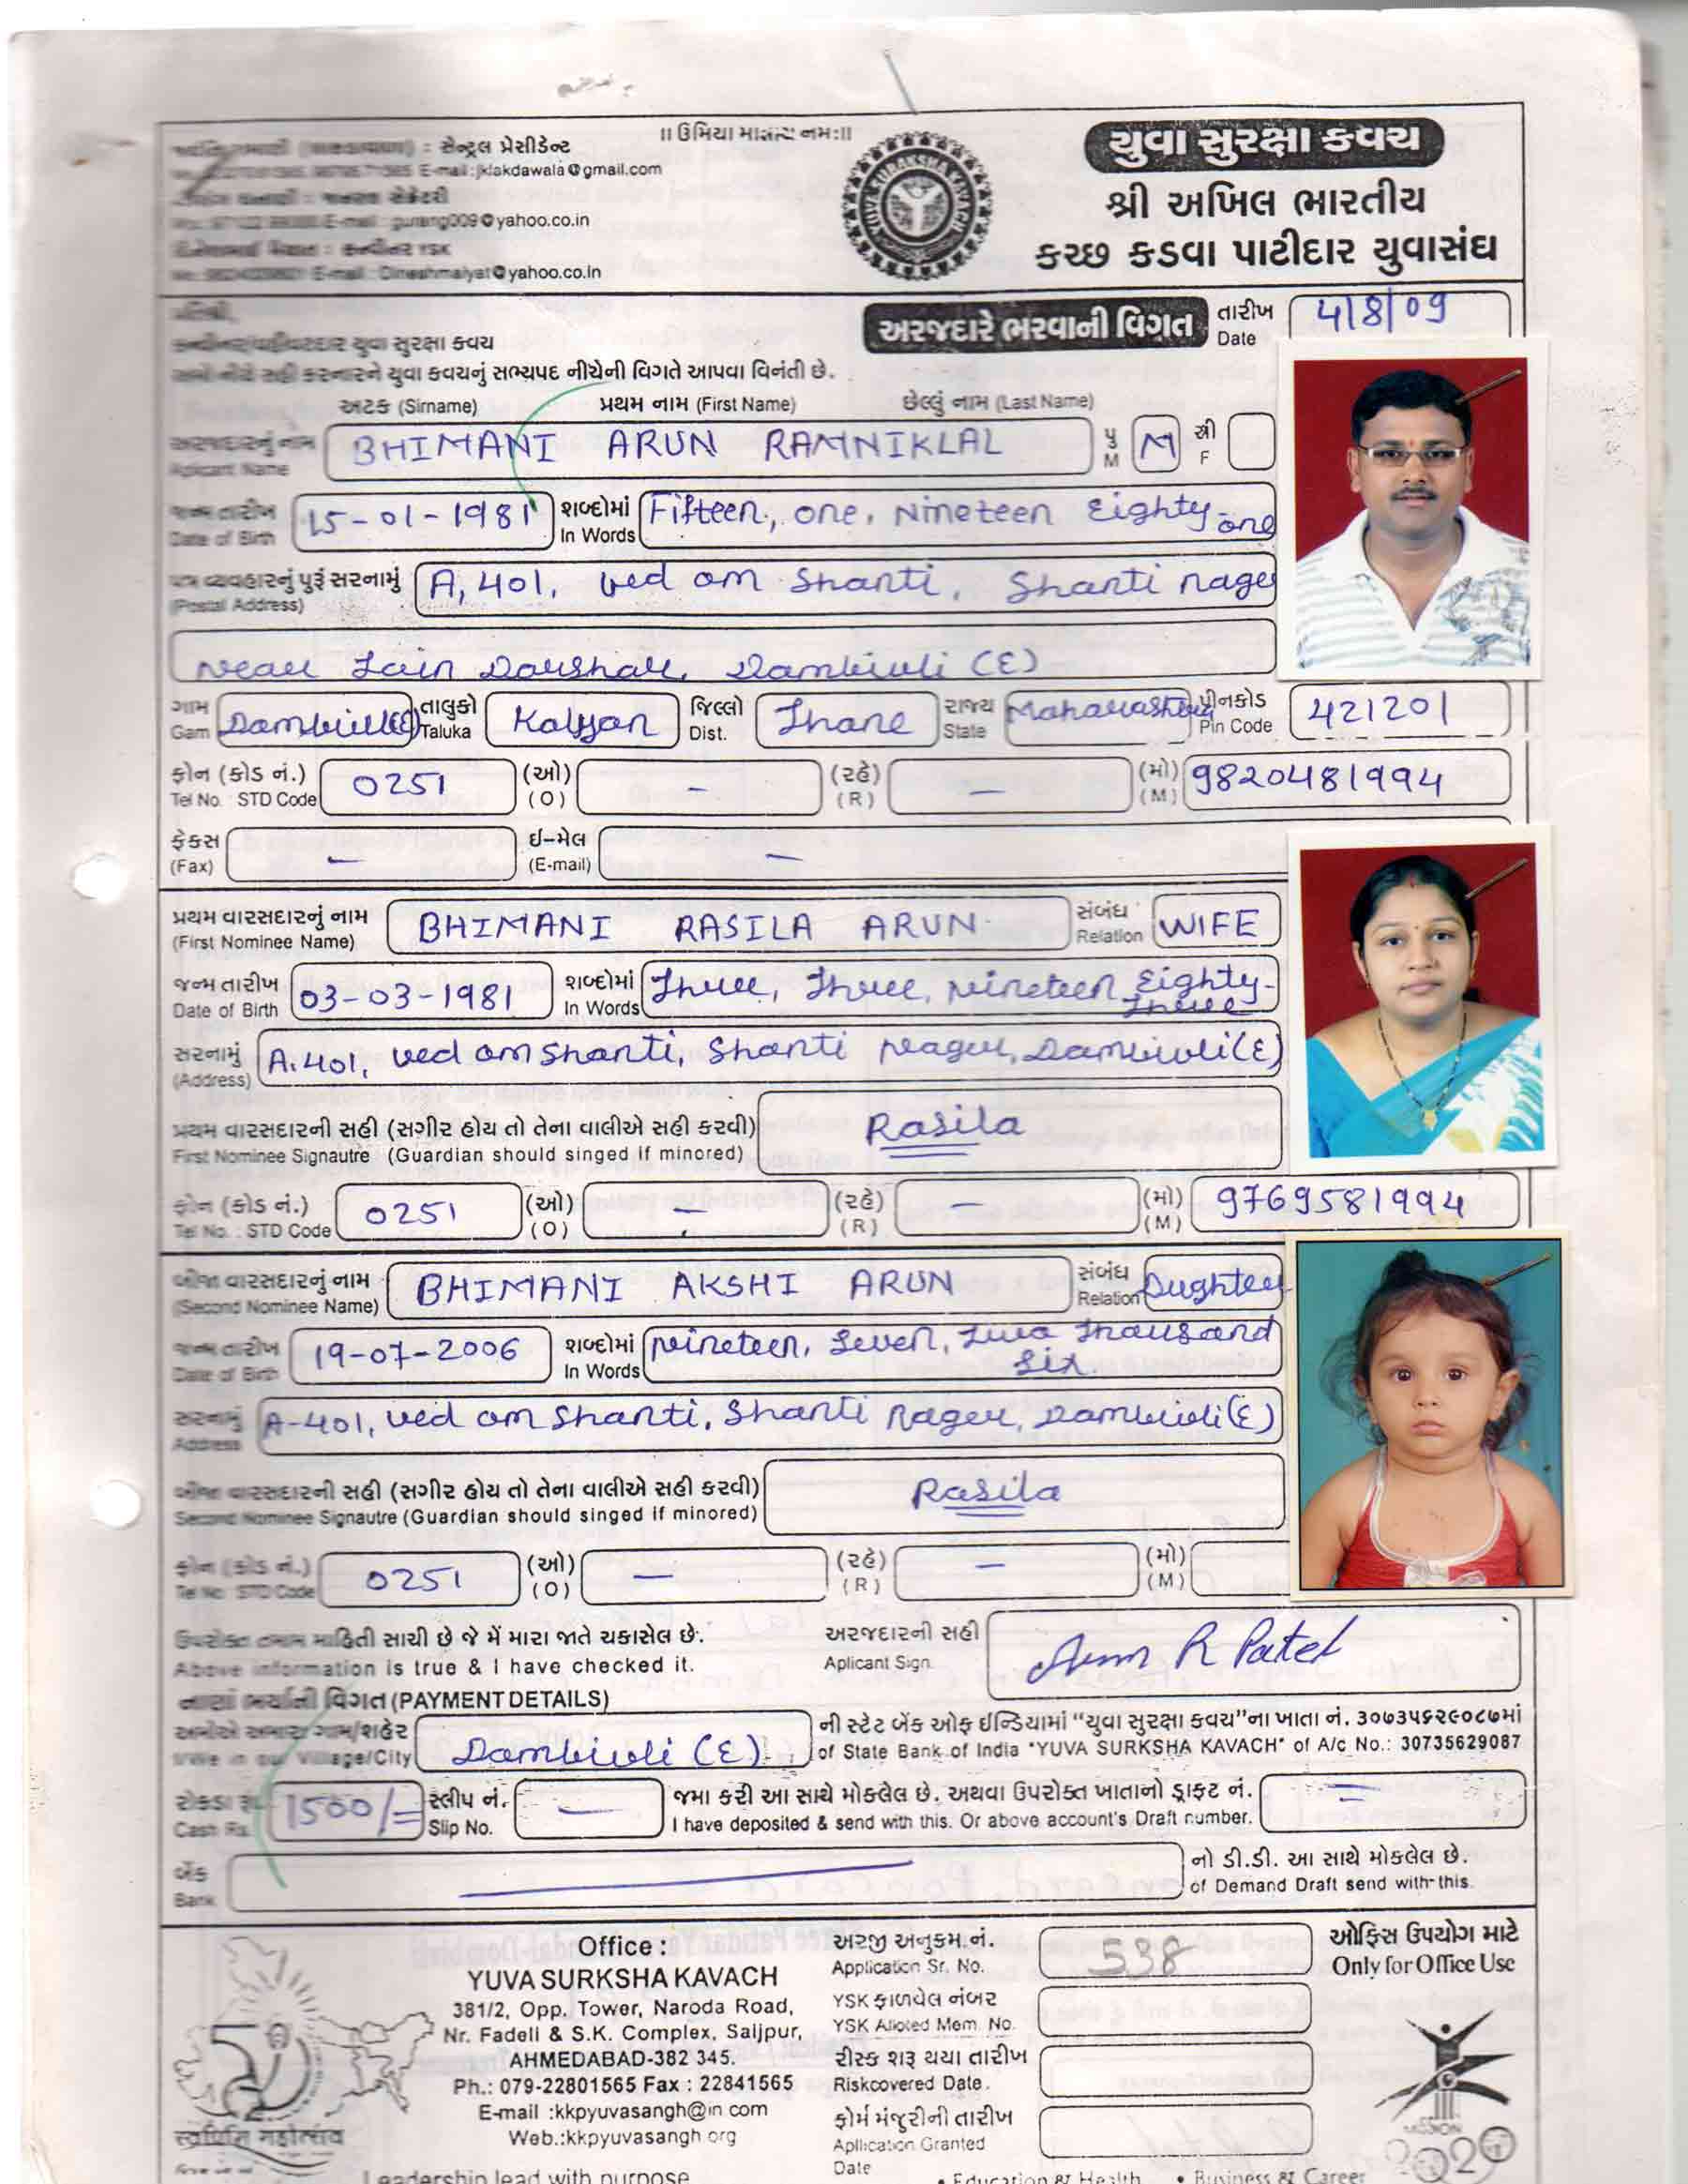 ॥ ઉમિયા માતાય નમઃ॥
: સેન્ટ્રલ પ્રેસીડેન્ટ
E-mail:jklakdawala@gmail.com
E-mail : gurang009@yahoo.co.in
YSK
E-mail : Dineshmaiyat@yahoo.co.in
યુવા સુરક્ષા કવચ
શ્રી અખિલ ભારતીય
કચ્છ કડવા પાટીદાર યુવાસંઘ
YUVA SURAKSHA KAVACH
અરજદારે ભરવાની વિગત
તારીખ
Date
4/8/09
યુવા સુરક્ષા કવચ
સહી કરનારને યુવા કવચનું સભ્યપદ નીચેની વિગતે આપવા વિનંતી છે.
અટક (Sirname) પ્રથમ નામ (First Name) છેલ્લું નામ (Last Name)
અરજદારનું નામ
Aplicant Name
BHIMANI ARUN RAMNIKLAL
પુ
M
M
સ્રી
F
જન્મ તારીખ
Date of Birth
15-01-1981
શબ્દોમાં
In Words
Fifteen, one, Nineteen Eighty one
પત્ર વ્યવહારનું પુરૂં સરનામું
(Postal Address)
A, 401, Ved om Shanti, Shanti nager
Near Jain Darshar, Dombivli (E)
ગામ
Gam
Dombivli(E)
તાલુકો
Taluka
Kalyan
જિલ્લો
Dist.
Thane
રાજ્ય
State
Maharashtra
પીનકોડ
Pin Code
421201
ફોન (કોડ નં.)
Tel No. STD Code
0251
(ઓ)
(O)
–
(રહે)
(R)
–
(મો)
(M)
9820481994
ફેક્સ
(Fax)
–
ઇ-મેલ
(E-mail)
–
પ્રથમ વારસદારનું નામ
(First Nominee Name)
BHIMANI RASILA ARUN
સંબંધ
Relation
WIFE
જન્મ તારીખ
Date of Birth
03-03-1981
શબ્દોમાં
In Words
Three, Three, Nineteen Eighty-Three
સરનામું
(Address)
A.401, Ved om Shanti, Shanti Nager, Dombivli(E)
પ્રથમ વારસદારની સહી (સગીર હોય તો તેના વાલીએ સહી કરવી)
First Nominee Signautre (Guardian should singed if minored)
Rasila
ફોન (કોડ નં.)
Tel No. : STD Code
0251
(ઓ)
(O)
–
(રહે)
(R)
–
(મો)
(M)
9769581994
બીજા વારસદારનું નામ
(Second Nominee Name)
BHIMANI AKSHI ARUN
સંબંધ
Relation
Dughter
જન્મ તારીખ
Date of Birth
19-07-2006
શબ્દોમાં
In Words
Nineteen, Seven, Two Thousand Six.
સરનામું
Address
A-401, Ved om Shanti, Shanti Nager, Dombivli(E)
બીજા વારસદારની સહી (સગીર હોય તો તેના વાલીએ સહી કરવી)
Second Nominee Signautre (Guardian should singed if minored)
Rasila
ફોન (કોડ નં.)
Tel No STD Code
0251
(ઓ)
(O)
–
(રહે)
(R)
–
(મો)
(M)
ઉપરોક્ત તમામ માહિતી સાચી છે જે મેં મારા જાતે ચકાસેલ છે.
Above information is true & I have checked it.
અરજદારની સહી
Aplicant Sign.
Arun R Patel
નાણાં ભર્યાની વિગત (PAYMENT DETAILS)
અમોએ અમારા ગામ/શહેર
I/We in our Village/City
Dombivli (E)
ની સ્ટેટ બેંક ઓફ ઈન્ડિયામાં “યુવા સુરક્ષા કવચ”ના ખાતા નં. ૩૦૭૩૫૬૨૯૦૮૭માં
of State Bank of India "YUVA SURKSHA KAVACH" of A/c No.: 30735629087
રોકડા રૂ.
Cash Rs.
1500/=
સ્લીપ નં.
Slip No.
–
જમા કરી આ સાથે મોકલેલ છે. અથવા ઉપરોક્ત ખાતાનો ડ્રાફ્ટ નં.
I have deposited & send with this. Or above account's Draft number.
બેંક
Bank
નો ડી.ડી. આ સાથે મોકલેલ છે.
of Demand Draft send with this.
Office :
YUVA SURKSHA KAVACH
381/2, Opp. Tower, Naroda Road,
Nr. Fadeli & S.K. Complex, Saijpur,
AHMEDABAD-382 345.
Ph.: 079-22801565 Fax : 22841565
E-mail :kkpyuvasangh@in com
Web.:kkpyuvasangh org
અરજી અનુક્રમ નં.
Application Sr. No.
538
YSK ફાળવેલ નંબર
YSK Alloted Mem. No.
રીસ્ક શરૂ થયા તારીખ
Riskcovered Date.
ફોર્મ મંજુરીની તારીખ
Apllication Granted
Date
ઓફિસ ઉપયોગ માટે
Only for Office Use
MISSION
2020
Leadership lead with purpose
• Education & Health • Business & Career